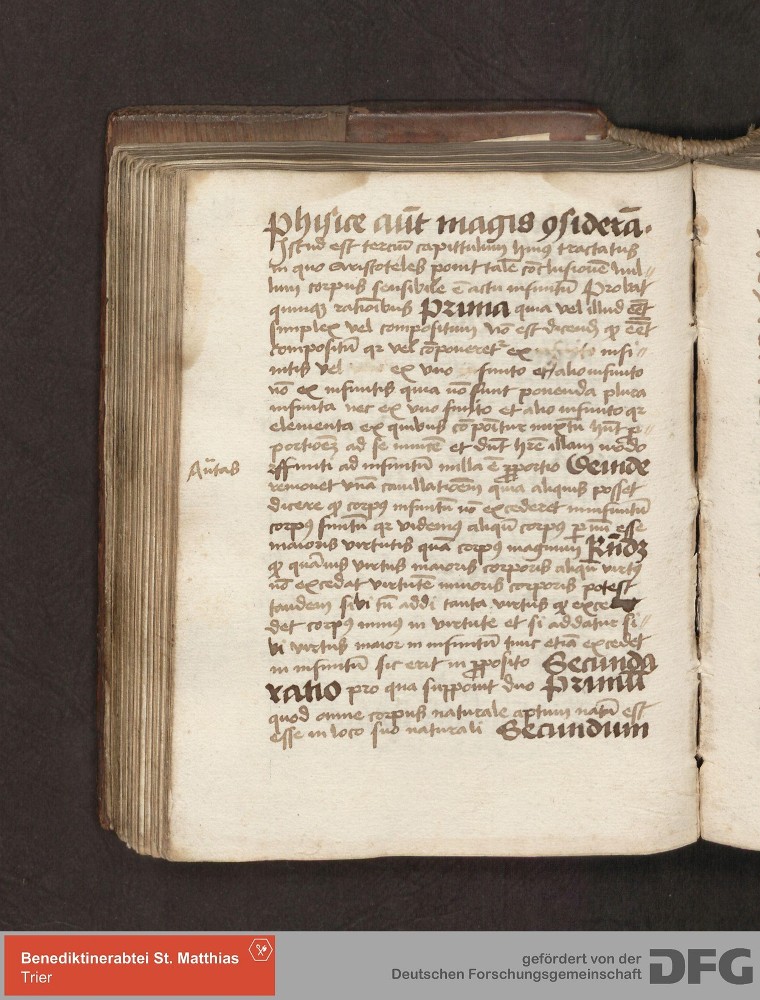 Phisice aūt magis ꝯsiderā.
Istud est terciū capittulum huiꝰ tractatus
in quo Aristoteles ponit talē cōclusionē nul-
lum corpus sensibile ē actu infinitū Probat
quinqꝫ rationibus Prima quia vel illud eēt
simplex vel compositum nō est dicendū ꝙ eēt
compositū qr vel cōponeret ex infi-
nitis vel ex vno finito et alio infinito
nō ex infinitis quia nō sunt ponenda plura
infinita nec ex vno finito et alio infinito qr
elementa ex quibus cōponitur mixtū hn̄t ꝓ-
portionē ad se inuicē et dn̄t hr̄e illam modo
Autas
finiti ad infinitū nulla ē ꝓportio Deinde
remouet vnā cauillationem quia aliquis posset
dicere ꝙ corpꝰ infinitū nō excederet in infinitū
corpꝰ finitū qr videmꝰ aliqū corpꝰ esse
maioris virtutis quā corpꝰ magnum Rn̄dꝫ
ꝙ quāuis virtus maioris corporis aliqn̄ virtꝰ
nō excedat virtutē minoris corporis potest
tandem sibi tn̄ addi tanta virtus ꝙ exce
det corpꝰ minus in virtute et si addatur si-
bi virtus maior in infinitū tunc etiā excedet
in infinitū sic erit in ꝓposito Secunda
ratio pro qua supponit duo Primū
quod omne corpus naturale aptum natū est
esse in loco suo naturali Secundum
Benediktinerabtei St. Matthias
Trier
gefördert von der
Deutschen Forschungsgemeinschaft
DFG